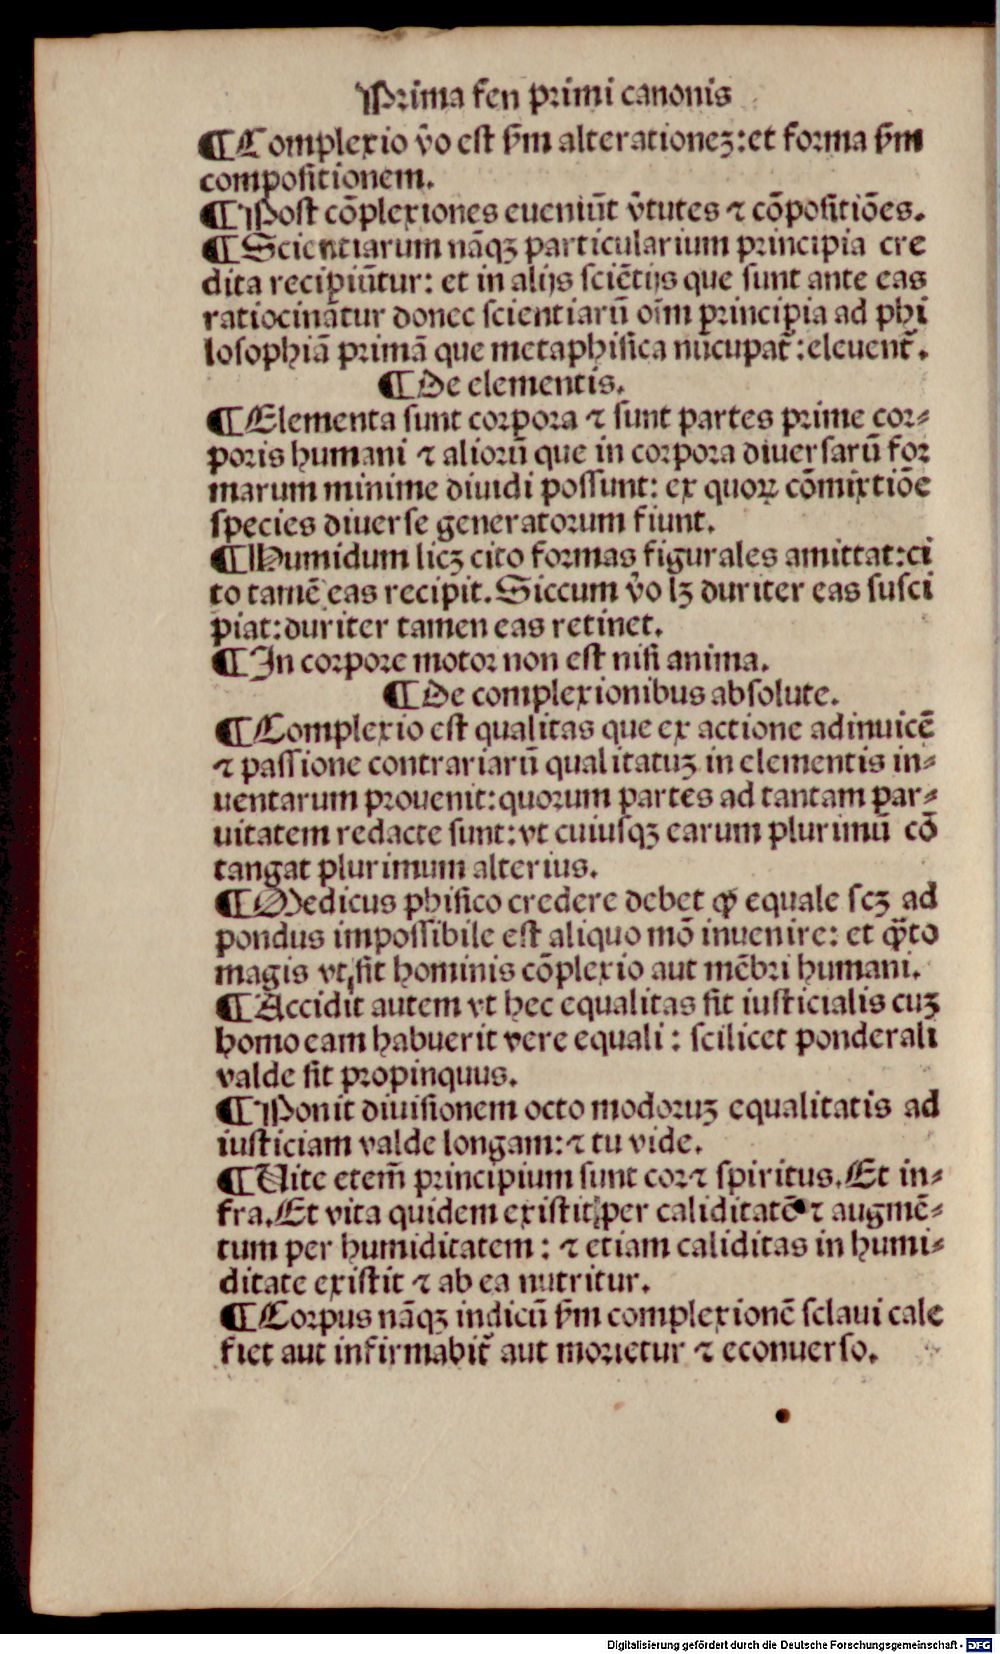 Prima fen primi canonis
¶ Complexio v̊o est ẜm alterationeꝫ: et forma ẜm
compositionem.
¶ Post cōplexiones eueniūt v̓tutes ⁊ cōpositiōes.
¶ Scientiarum nāqꝫ particularium principia cre
dita recipiūtur: et in alijs sciētijs que sunt ante eas
ratiocinātur donec scientiarū oīm principia ad phi
losophiā primā que metaphisica nūcupat᷑: eleuent᷑.
¶ De elementis.
¶ Elementa sunt corpora ⁊ sunt partes prime cor⸗
poris humani ⁊ aliorū que in corpora diuersarū for
marum minime diuidi possunt: ex quoꝝ cōmixtiōe
species diuerse generatorum fiunt.
¶ Humidum licꝫ cito formas figurales amittat: ci
to tamē eas recipit. Siccum v̊o lꝫ duriter eas susci
piat: duriter tamen eas retinet.
¶ In corpore motor non est nisi anima.
¶ De complexionibus absolute.
¶ Complexio est qualitas que ex actione adinuicē
⁊ passione contrariarū qualitatuꝫ in elementis in⸗
uentarum prouenit: quorum partes ad tantam par⸗
uitatem redacte sunt: vt cuiusqꝫ earum plurimū cō
tangat plurimum alterius.
¶ Medicus phisico credere debet ꝙ equale scꝫ ad
pondus impossibile est aliquo mō inuenire: et q̈̄to
magis vt sit hominis cōplexio aut mēbri humani.
¶ Accidit autem vt hec equalitas sit iusticialis cuꝫ
homo eam habuerit vere equali: scilicet ponderali
valde sit propinquus.
¶ Ponit diuisionem octo modoruꝫ equalitatis ad
iusticiam valde longam: ⁊ tu vide.
¶ Uite etem̄ principium sunt cor ⁊ spiritus. Et in⸗
fra. Et vita quidem existit per caliditatē ⁊ augmē⸗
tum per humiditatem: ⁊ etiam caliditas in humi⸗
ditate existit ⁊ ab ea nutritur.
¶ Corpus nāqꝫ indicū ẜm complexionē sclaui cale
fiet aut infirmabit᷑ aut morietur ⁊ econuerso.
Digitalisierung gefördert durch die Deutsche Forschungsgemeinschaft - DFG